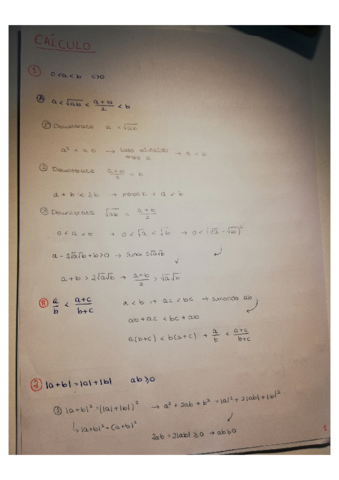 CÁLCULO
① 0<a<b c>0
Ⓐ a<√ab<(a+b)/2<b
① Demostrar a<√ab
a² < a b → a < b
② Demostrar (a+b)/2 < b
a + b < 2b → a < b
③ Demostrar √ab < (a+b)/2
0<a<b → 0<√a<√b → 0<(√a-√b)²
a-2√a√b+b>0 → sumo 2√a√b
a+b>2√a√b → (a+b)/2 > √a√b
Ⓑ a/b < (a+c)/(b+c) a<b → ac<bc → sumando ab
ab+ac<bc+ab
a(b+c)<b(a+c) → a/b < (a+c)/(b+c)
② |a+b|=|a|+|b| ab≥0
① |a+b|²=(|a|+|b|)² → a²+2ab+b²=|a|²+2|ab|+|b|²
↳ |a+b|²=(a+b)²
2ab=2|ab|≥0 → ab≥0
1